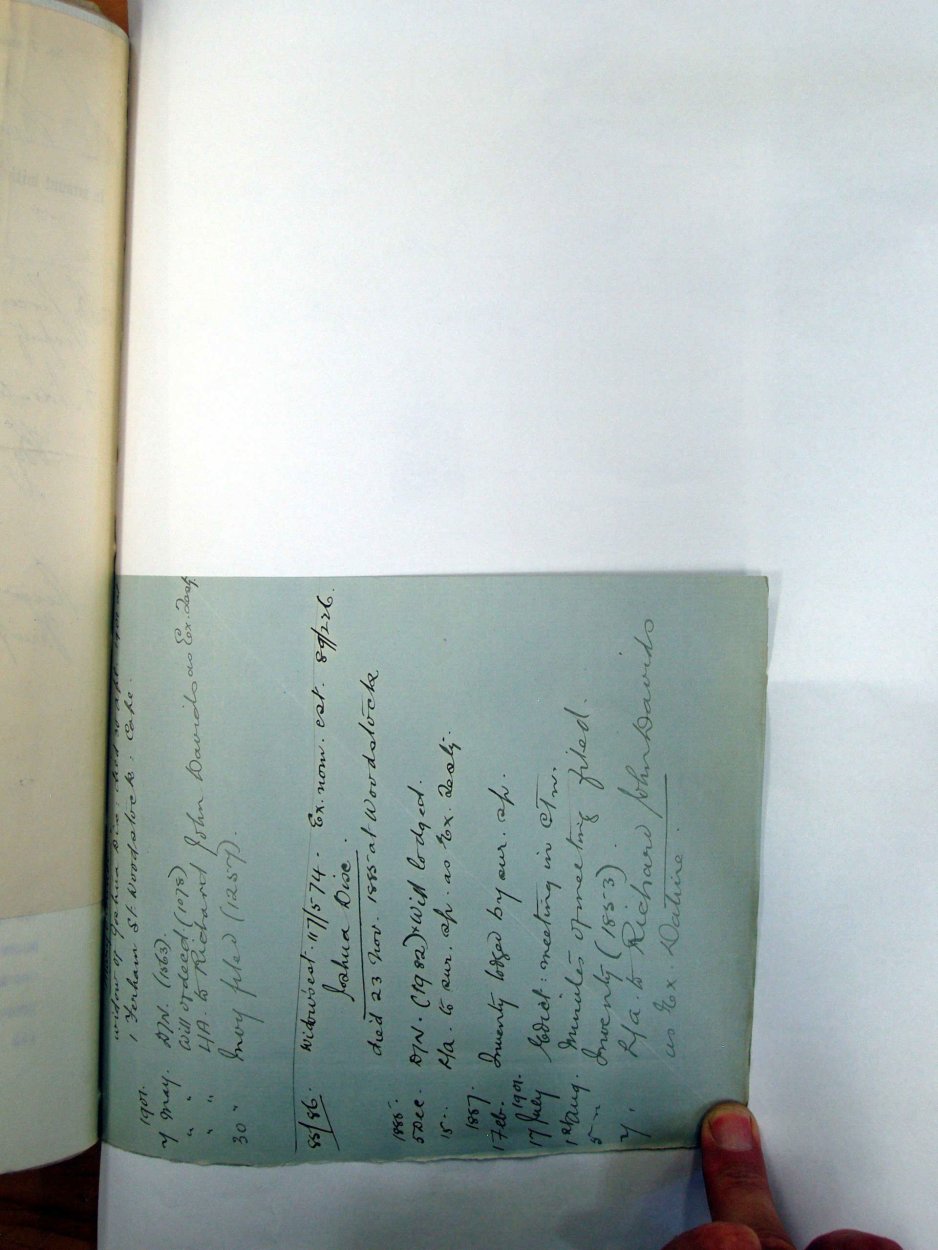 widow of Joshua Dixie died
1 Yerham St. Woodstock. Cape.
1901.
7 May. D/N. (1863).
" " Will ordered (1078)
" " L/A. to Richard John Davids as Ex. Test
30 " Invy filed (1257).
85/86. Widow's est. 117/574. Ex. nom. est. 89/226.
Joshua Dixie.
died 23 Nov. 1885 at Woodstock
1885.
5 Dec. D/N. (1982) & Will lodged.
15 . L/A. to sur. sp. as Ex. Test.
1887.
17 Feb. Inventy lodged by sur. sp.
1901.
17 July Edict: meeting in CTn.
1st Aug. Minutes of meeting filed.
5 " Inventy (1853).
7 " L/A. to Richard John Davids
as Ex. Dative.